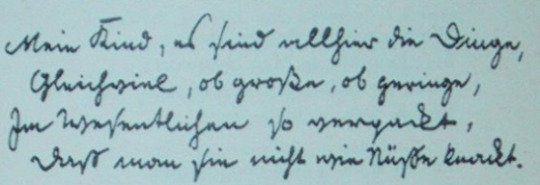 Mein Kind, es sind allhier die Dinge,
Gleichviel, ob große, ob geringe,
Im Wesentlichen so verpackt,
Daß man sie nicht wie Nüße knackt.